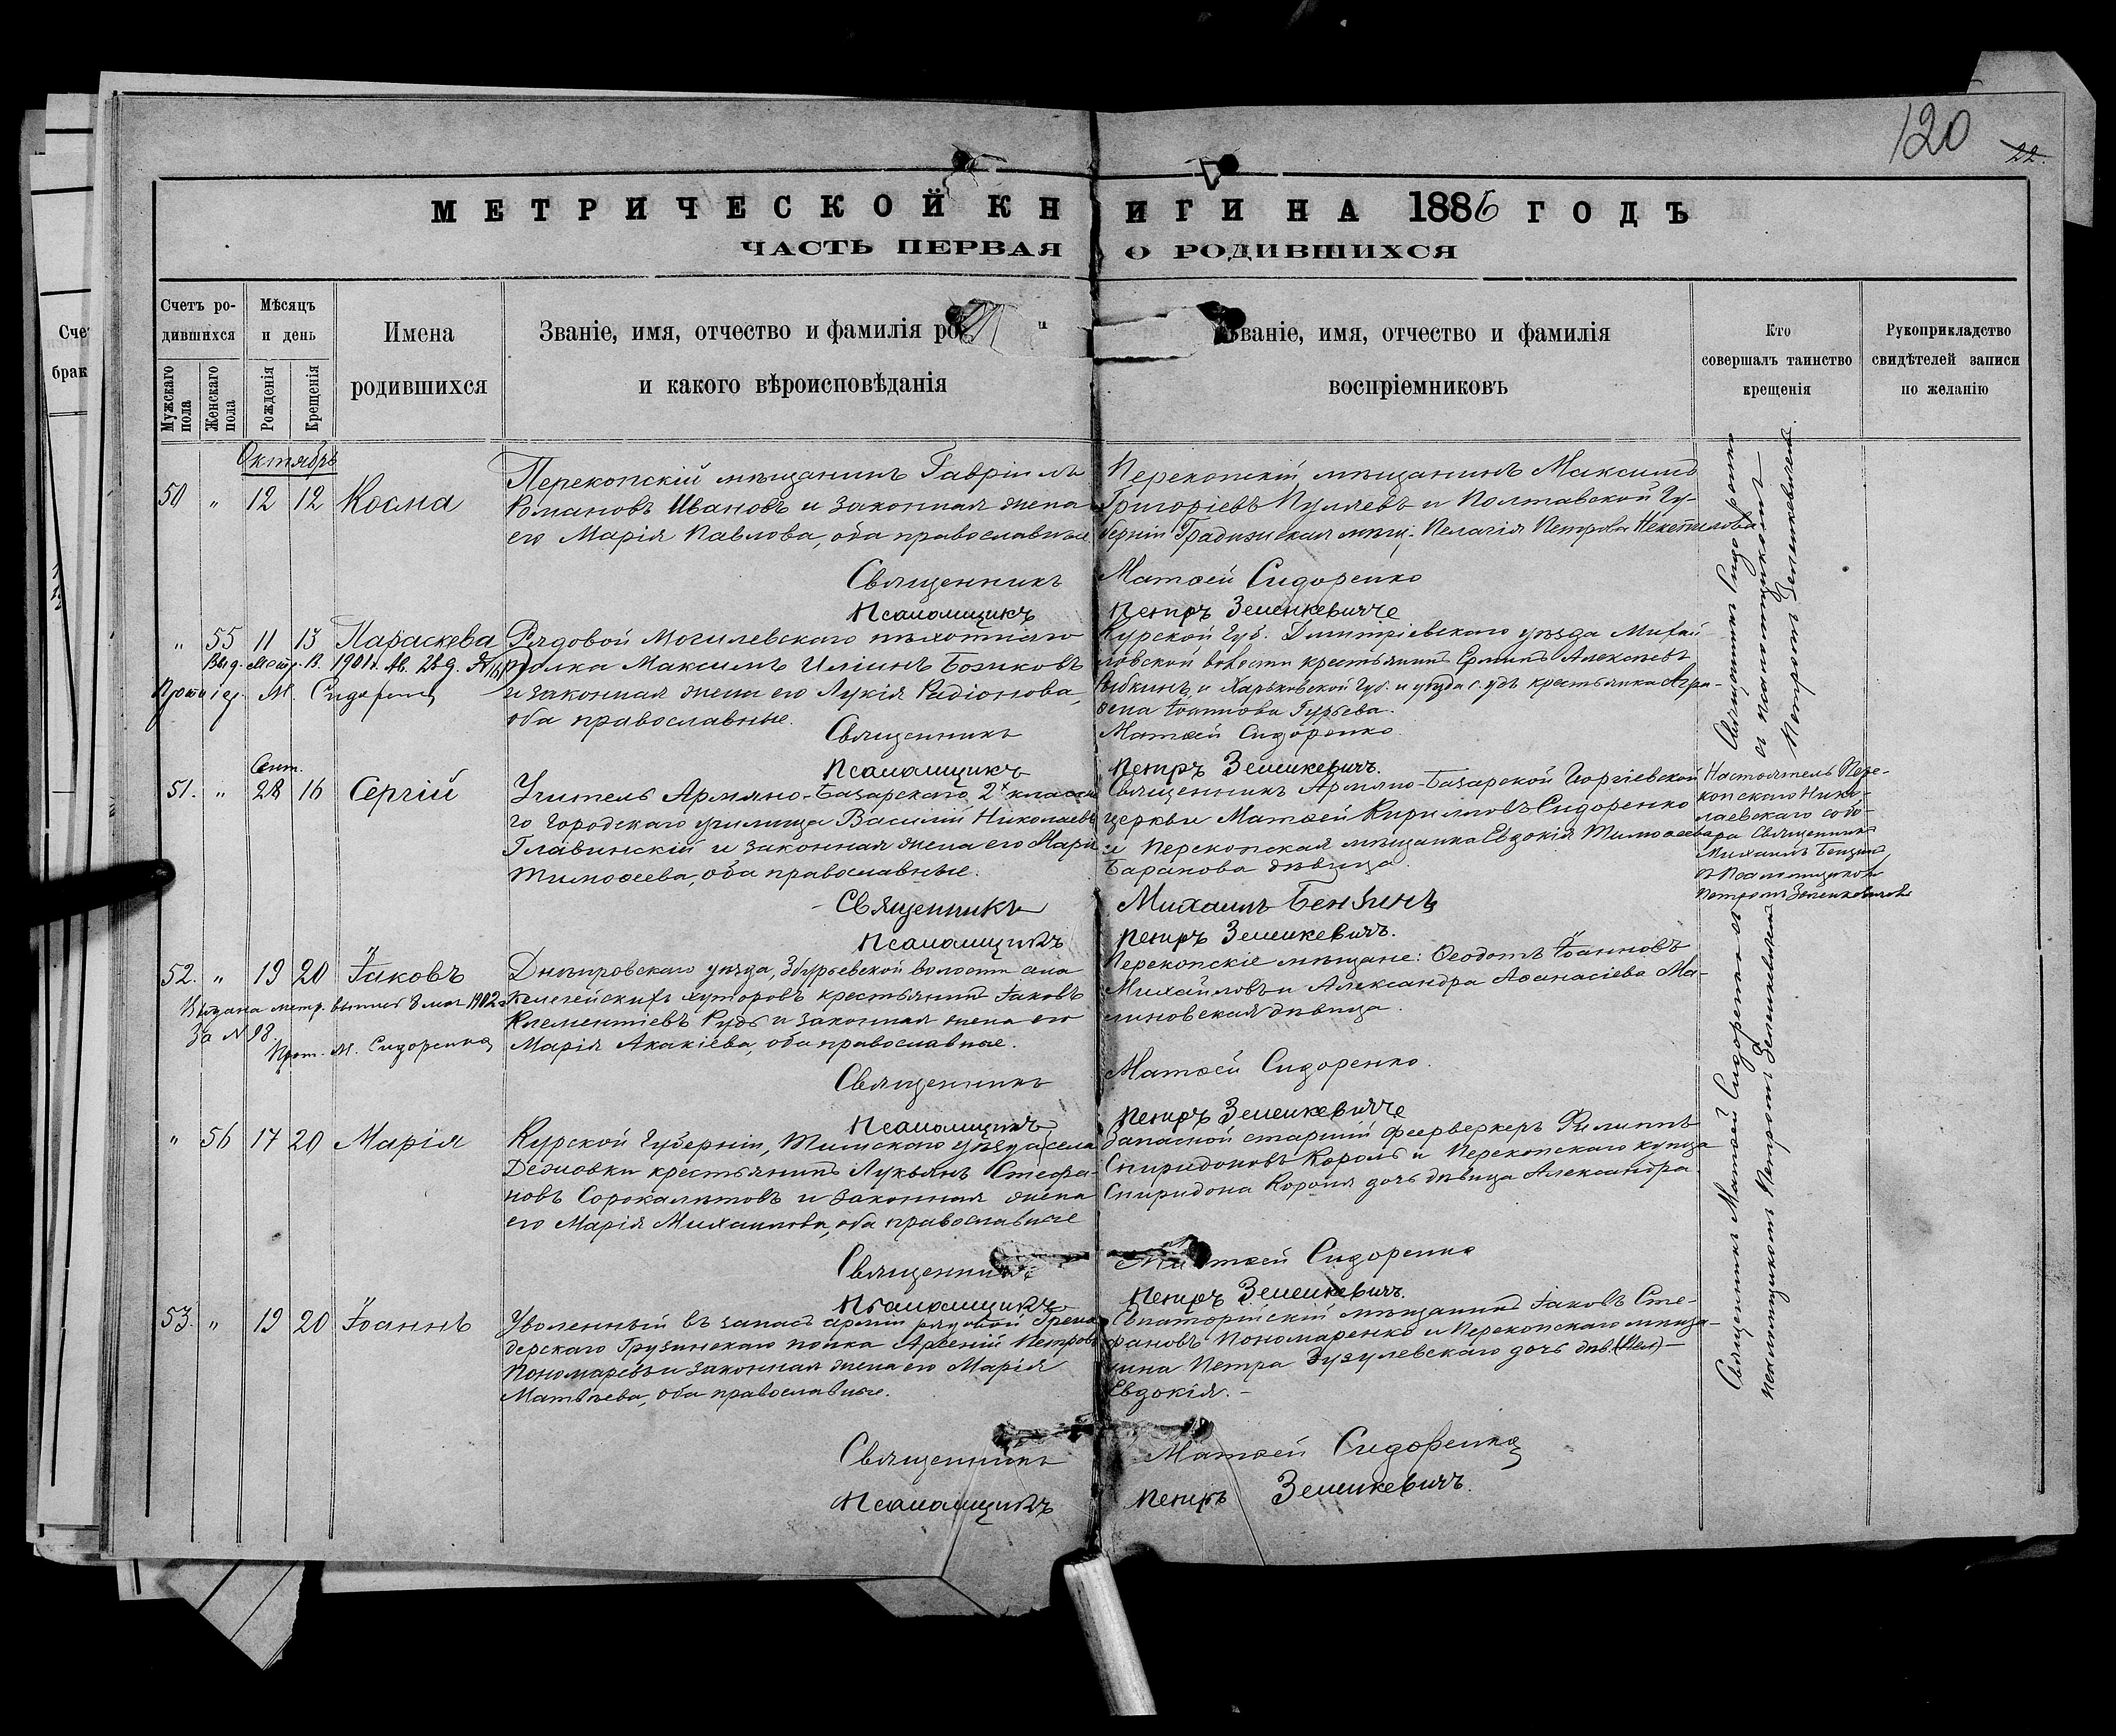 120
22.
МЕТРИЧЕСКОЙ КНИГИ НА 1886 ГОДЪ
ЧАСТЬ ПЕРВАЯ О РОДИВШИХСЯ
Счетъ родившихся
Мужскаго пола
Женскаго пола
Мѣсяцъ и день
Рожденія
Крещенія
Имена
родившихся
Званіе, имя, отчество и фамилія ро
и какого вѣроисповѣданія
Званіе, имя, отчество и фамилія
воспріемниковъ
Кто
совершалъ таинство
крещенія
Рукоприкладство
свидѣтелей записи
по желанію
Октябрь
50 " 12 12 Косма
Перекопскій мѣщанинъ Гавріилъ
Романовъ Ивановъ и законная жена
его Марія Павлова, оба православные
Перекопскій мѣщанинъ Максимъ
Григорьевъ Пуляевъ и Полтавской Гу-
берніи Градижская мѣщ. Пелагія Петрова
Священникъ Матѳей Сидоренко
Псаломщикъ Петръ Земенкевичъ
" 55 11 13 Параскева
Выд. метр. В. 1901 г. Ав. 28 д.
Протоіер. М. Сидоренко
Рядовой Могилевскаго пѣхотнаго
полка Максимъ Иліинъ Божковъ
и законная жена его Лукія Радіонова,
оба православные.
Курской Губ. Димитріевскаго уѣзда Михай-
ловской волости крестьянинъ Алексѣевъ
и Харьковской Губ. и уѣзда крестьянка Агра-
фена Іоаннова Гурьева.
Священникъ Матѳей Сидоренко
Псаломщикъ Петръ Земенкевичъ.
Священникъ Сидоренко
съ псаломщикомъ
Петромъ Земенкевичемъ.
Сент.
51. " 28 16 Сергій
Учитель Армяно-Базарскаго 2х класна
го Городскаго училища Василій Николаевъ
Главинскій и законная жена его Марія
Тимоѳеева, оба православные.
Священникъ Армяно-Базарской Георгіевской
церкви Матѳей Кирилловъ Сидоренко
и Перекопская мѣщанка Евдокія Тимоѳеева
Баранова дѣвица.
Настоятель Пере-
копскаго Нико-
лаевскаго собо-
ра Священникъ
Михаилъ Бензинъ
съ Псаломщикомъ
Петромъ Земенкевичемъ
Священникъ Михаилъ Бензинъ
Псаломщикъ Петръ Земенкевичъ.
52. " 19 20 Іаковъ
Выдана метр. выпись 8 мая 1902 г.
За N 98.
Прот. М. Сидоренко
Днѣпровскаго уѣзда, Збурьевской волости
Келегейскихъ хуторовъ крестьянинъ Іаковъ
Климентіевъ Рудь и законная жена его
Марія Акакіева, оба православные.
Перекопскіе мѣщане: Ѳеодотъ Іоанновъ
Михайловъ и Александра Аѳанасіева Ма-
линовская дѣвица.
Священникъ Матѳей Сидоренко.
Псаломщикъ Петръ Земенкевичъ
" 56 17 20 Марія
Курской Губерніи, Тимскаго уѣзда села
крестьянинъ Лукьянъ Стефа-
новъ Сорокалѣтовъ и законная жена
его Марія Михаилова, оба православные
Запасной старшій фейерверкеръ Филиппъ
Спиридоновъ Король и Перекопскаго купца
Спиридона Короля дочь дѣвица Александра.
Священникъ Матѳей Сидоренко
Псаломщикъ Петръ Земенкевичъ.
53. " 19 20 Іоаннъ
Уволенный въ запасъ арміи рядовой Грена
дерскаго Грузинскаго полка Арсеній Петровъ
Пономаревъ и законная жена его Марія
Матвѣева, оба православные.
Евпаторійскій мѣщанинъ Іаковъ Сте-
фановъ Пономаренко и Перекопскаго мѣща-
нина Петра Зузулевскаго дочь дѣв.
Евдокія.
Священникъ Матѳей Сидоренко съ
псаломщикомъ Петромъ Земенкевичемъ
Священникъ Матѳей Сидоренко
Псаломщикъ Петръ Земенкевичъ.